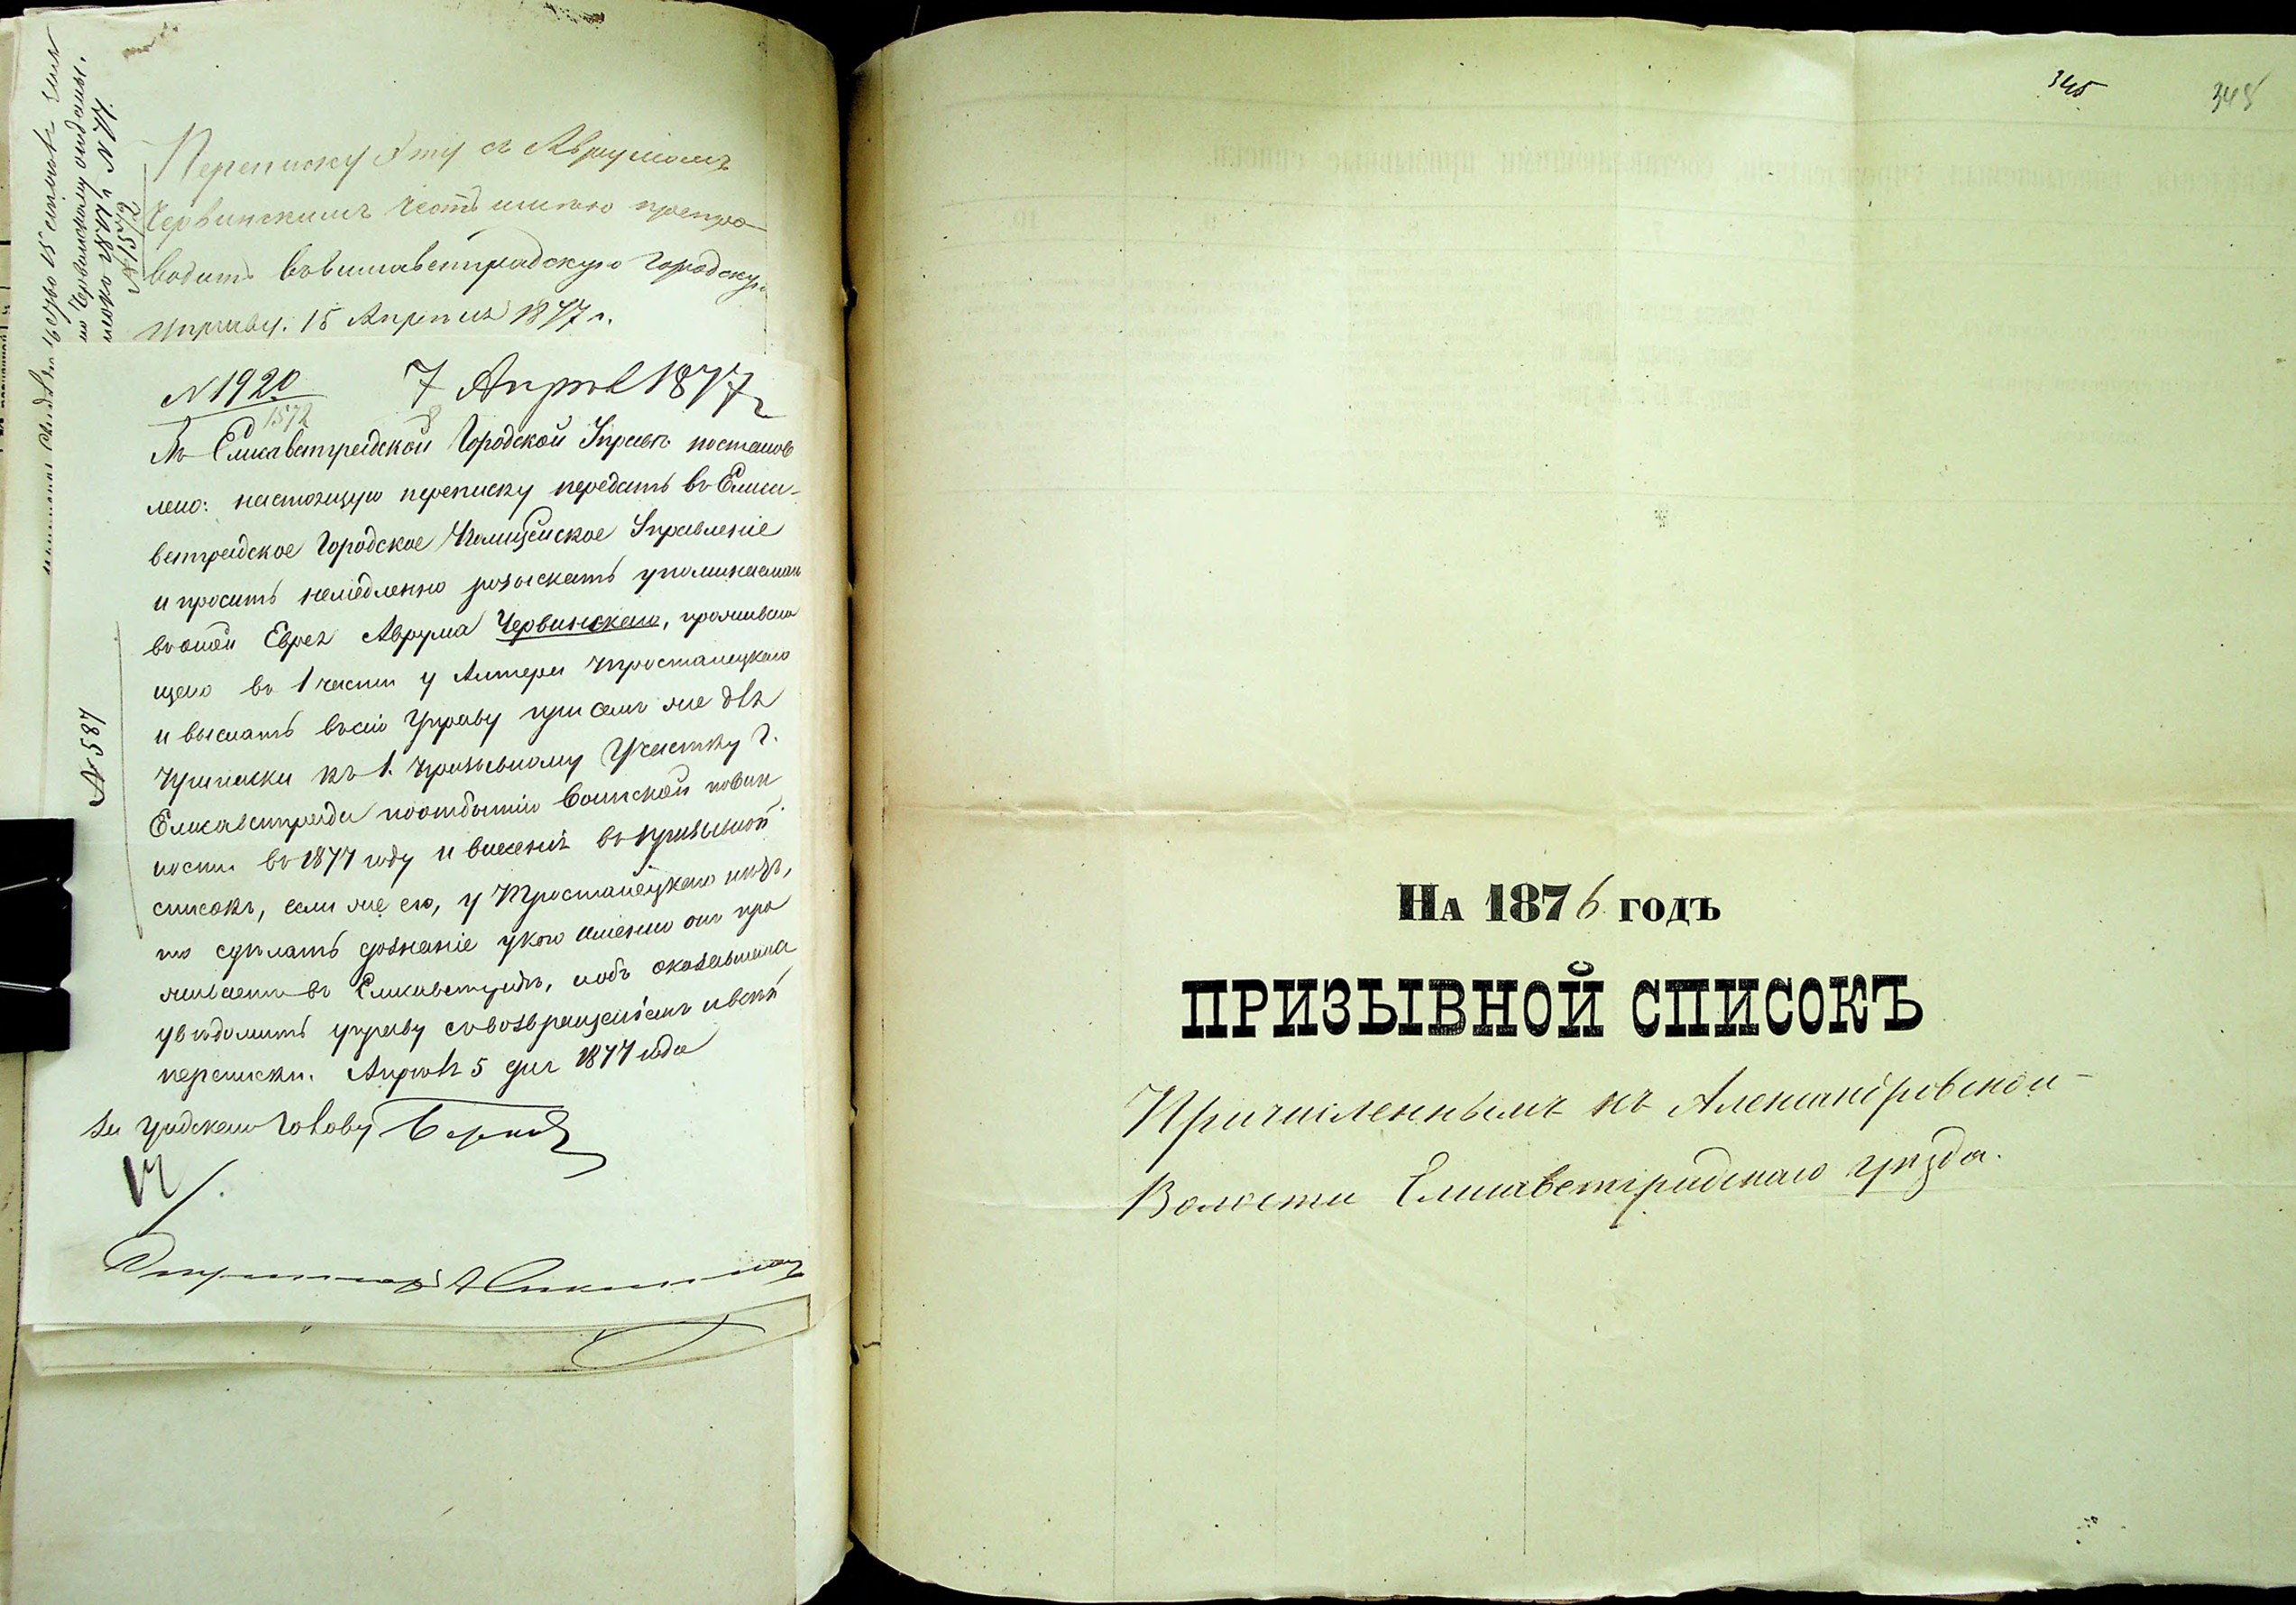 Переписку эту съ Аврумомъ
Червинскимъ честь имѣю препро-
водить въ Елисаветградскую Городскую
Управу. 15 Апрѣля 1877 г.
№ 1572
№ 1920
1572
7 Апрѣля 1877 г
Въ Елисаветградской Городской Управѣ постанов
лено: настоящую переписку передать въ Елиса-
ветградское Городское Полицейское Управленіе
и просить немедленно розыскать упоминаемаго
въ оной Еврея Аврума Червинскаго, проживаю
щаго въ 1 части у Алтера Тростанецкаго
и выслать въ сію Управу при семъ же для
приписки къ 1. призывному Участку г.
Елисаветграда по отбытію воинской повин
ности въ 1877 году и внесенія въ призывной
списокъ, если же его, у Тростанецкаго нѣтъ,
то сдѣлать дознаніе у кого именно онъ про
живаетъ въ Елисаветградѣ, и объ оказавшемся
увѣдомить управу съ возвращеніемъ и всей
переписки. Апрѣля 5 дня 1877 года
За Градскаго Голову
№ 587
345
345
На 1876 годъ
ПРИЗЫВНОЙ СПИСОКЪ
Причисленнымъ къ Александровской
Волости Елисаветградскаго уѣзда.